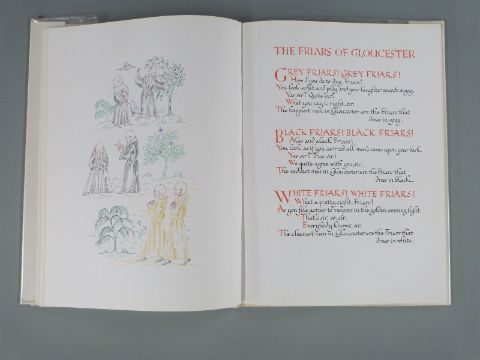 THE FRIARS OF GLOUCESTER
GREY FRIARS! GREY FRIARS!
How d'you do to-day, Friars?
You look so fat and jolly and your laughter sounds so gay,
Yes sir! Quite sir!
What you say is right, sir,
The happiest men in Gloucester are the Friars that
dress in grey.
BLACK FRIARS! BLACK FRIARS!
Alas and alack Friars!
You look as if you carried all men's cares upon your back.
Yes sir! True sir!
We quite agree with you, sir,
The saddest men in Gloucester are the Friars that
dress in black.
WHITE FRIARS! WHITE FRIARS!
What a pretty sight, Friars!
As you files to vespers in the golden evening light.
That's sir, sir,
Everybody knows, sir,
The cleanest men in Gloucester are the Friars that
dress in white.